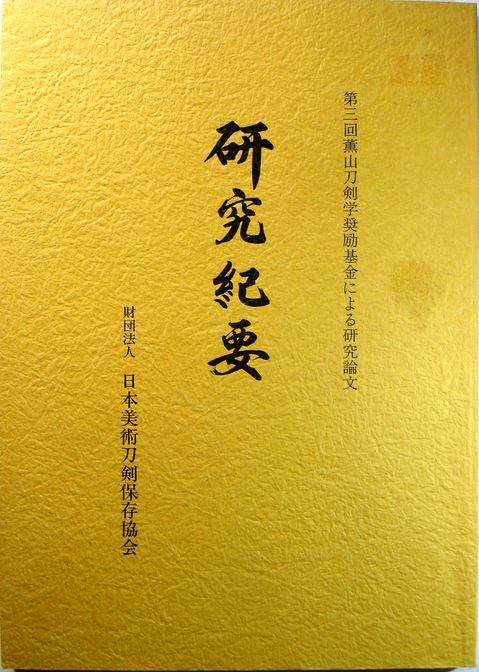 第三回薫山刀剣学奨励基金による研究論文
研究紀要
財団法人 日本美術刀剣保存協会